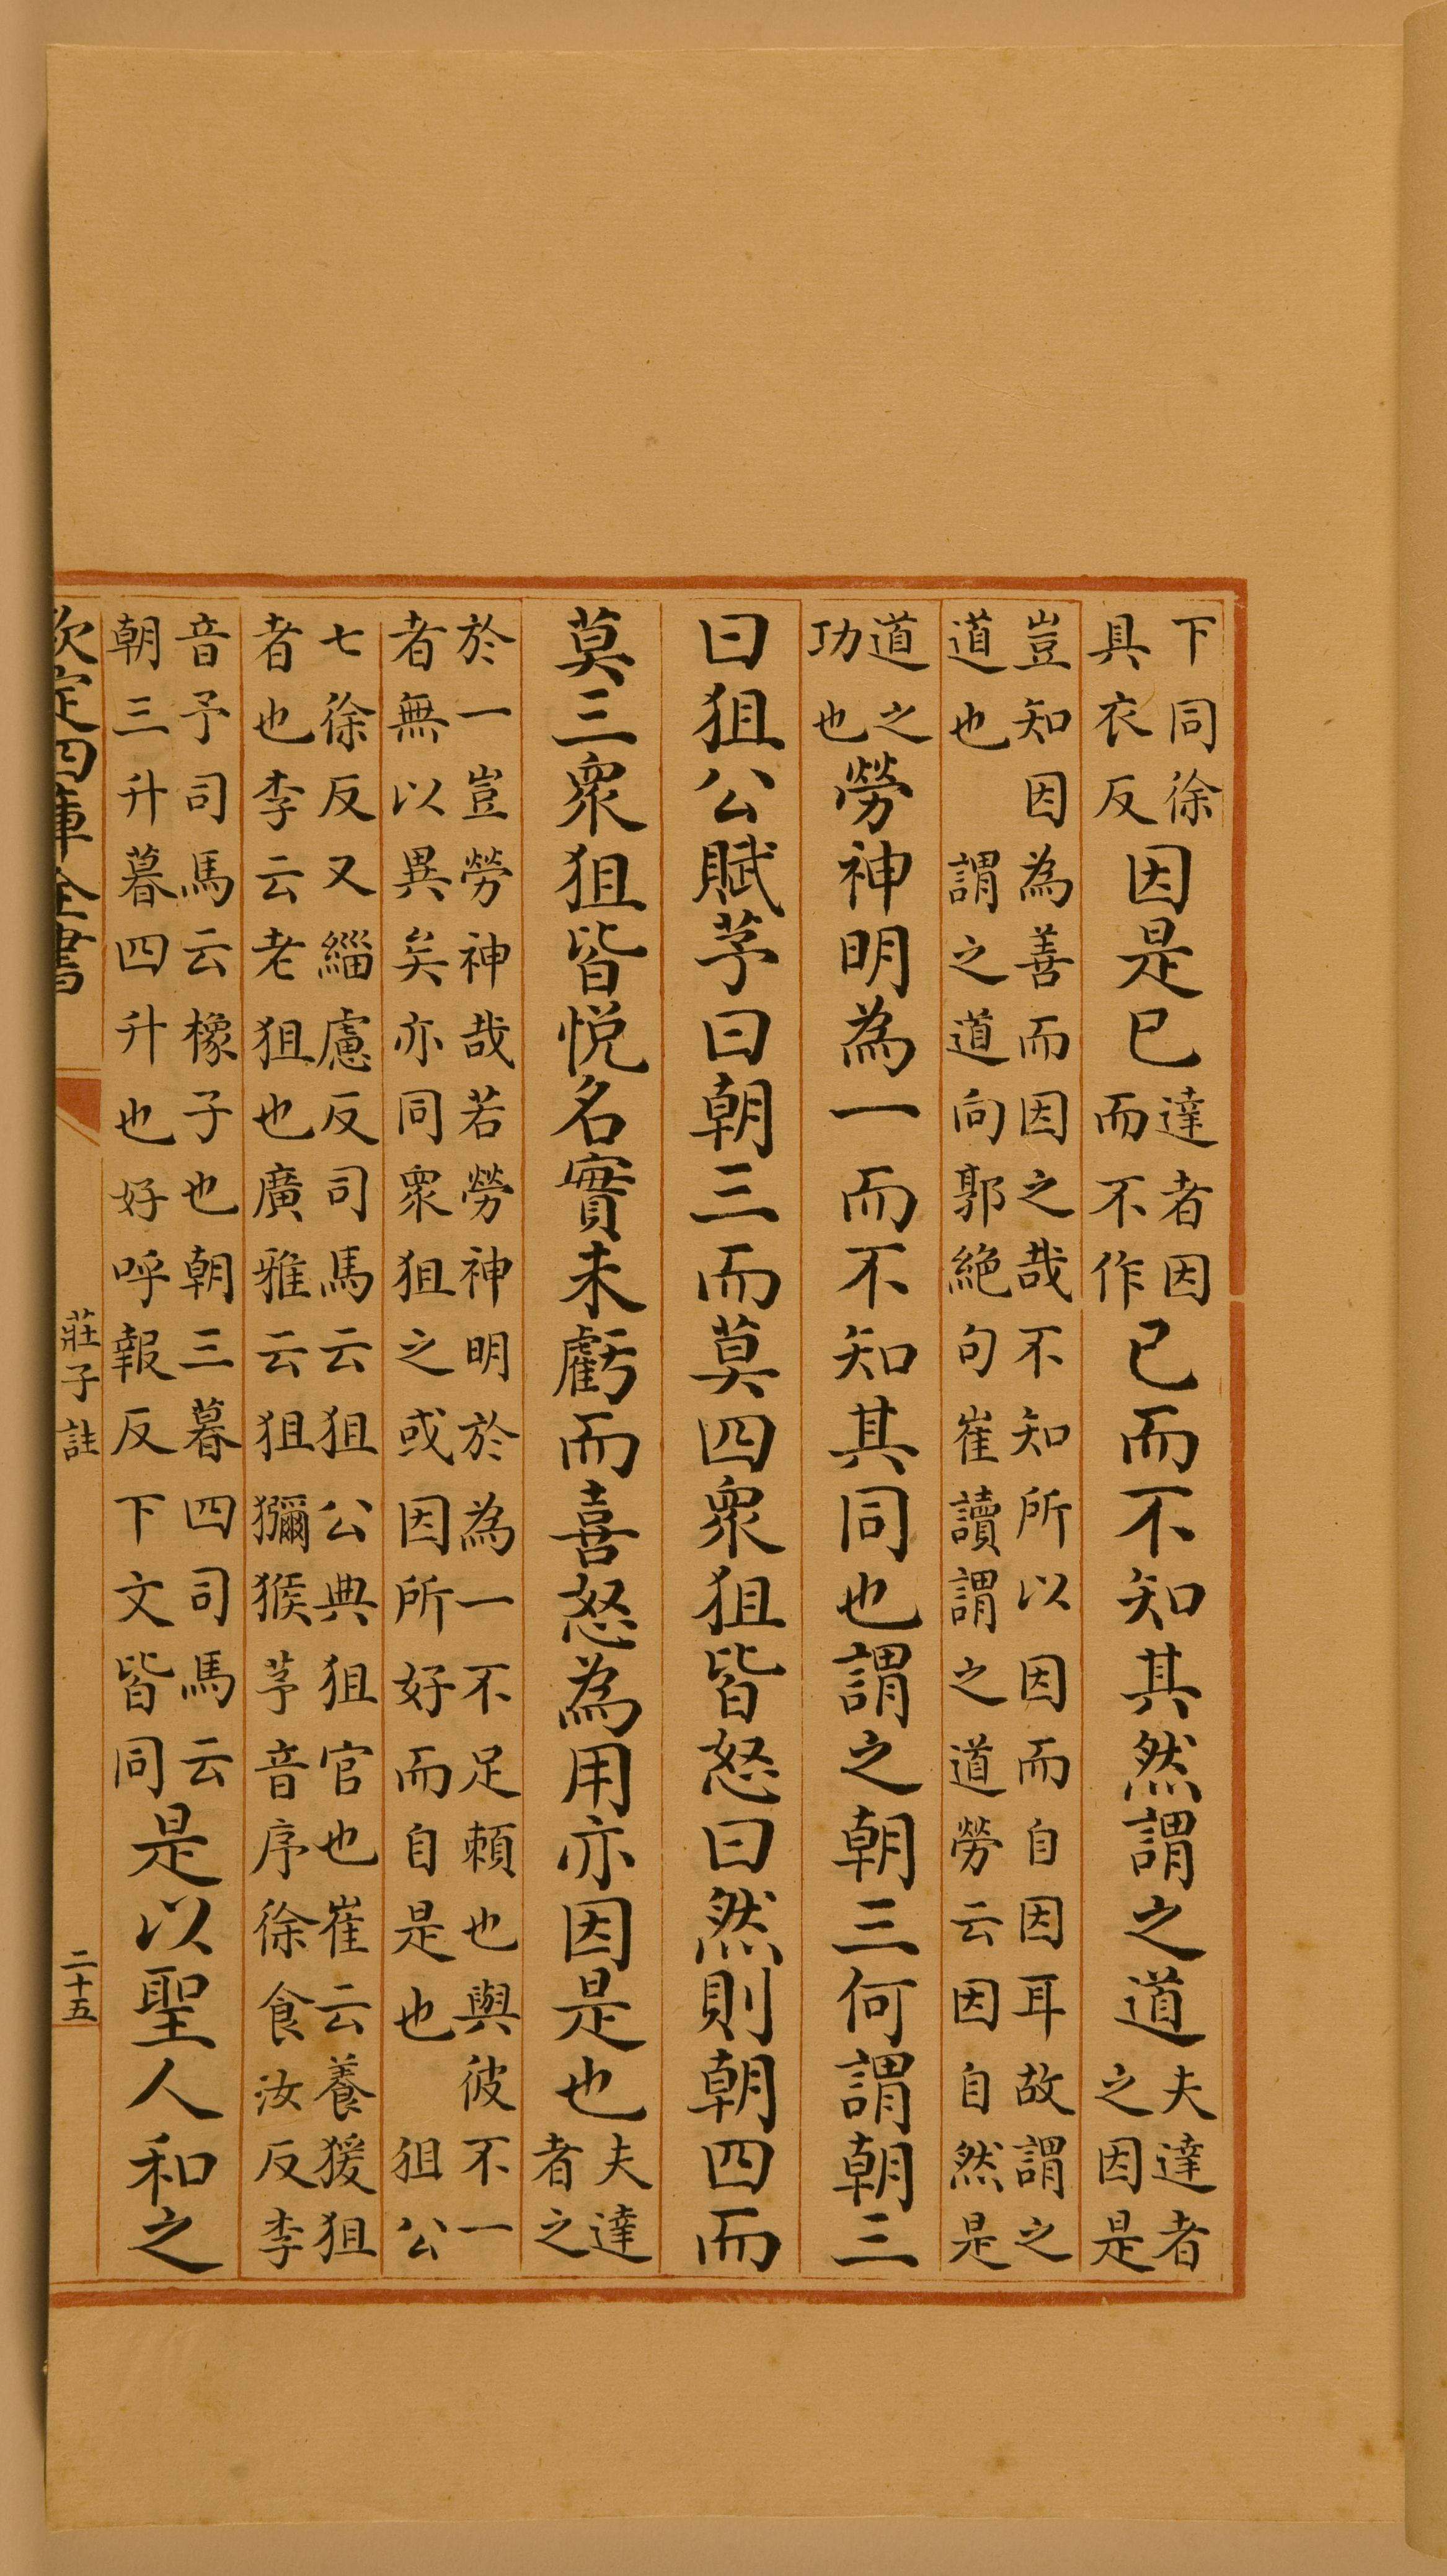 下同徐具衣反因是已達者因而不作已而不知其然謂之道夫達者之因是
豈知因為善而因之哉不知所以因而自因耳故謂之
道也　謂之道向郭絶句崔讀謂之道勞云因自然是
道之功也勞神明為一而不知其同也謂之朝三何謂朝三
曰狙公賦芧曰朝三而莫四衆狙皆怒曰然則朝四而
莫三衆狙皆悦名實未虧而喜怒為用亦因是也夫達者之
於一豈勞神哉若勞神明於為一不足頼也與彼不一
者無以異矣亦同衆狙之或因所好而自是也　狙公
七徐反又緇慮反司馬云狙公典狙官也崔云養猨狙
者也李云老狙也廣雅云狙獼猴芧音序徐食汝反李
音予司馬云橡子也朝三暮四司馬云朝三升暮四升也好呼報反下文皆同是以聖人和之
欽定四庫全書
莊子註
二十五